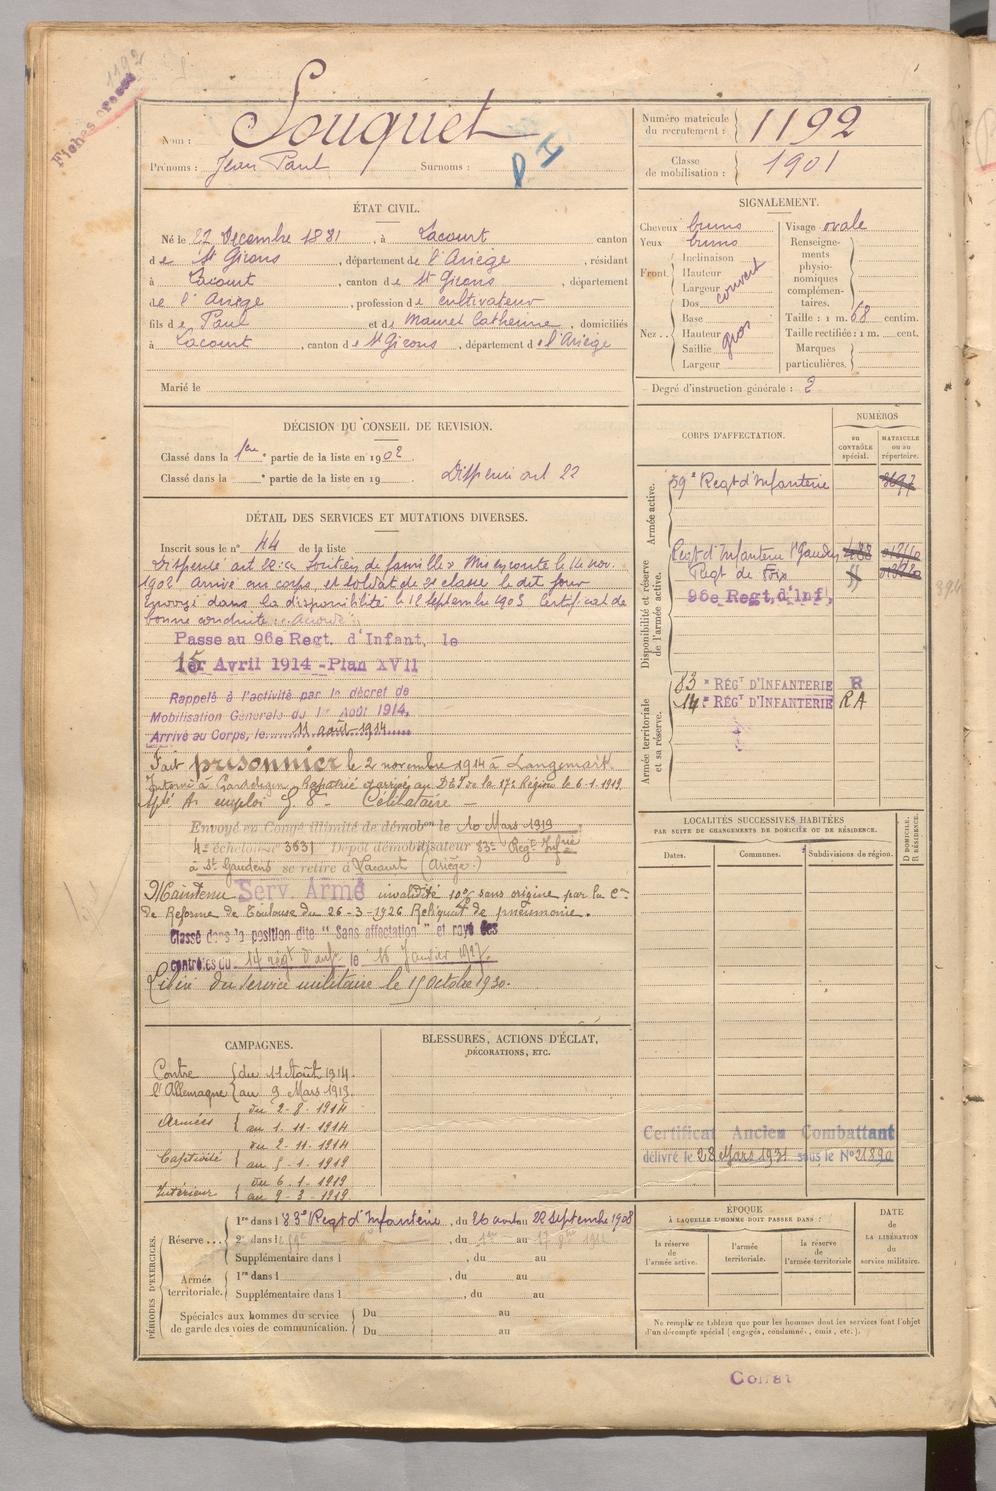 1192
Fiches
Nom : Souquet
Prénoms : Jean Paul Surnoms :
Numéro matricule du recrutement : 1192
Classe de mobilisation : 1901
ÉTAT CIVIL.
Né le 22 Décembre 1881, à Lacourt canton
de St Girons, département de l'Ariège, résidant
à Lacourt, canton de St Girons, département
de l'Ariège, profession de cultivateur
fils de Paul et de Mauret Catherine, domiciliés
à Lacourt, canton de St Girons, département de l'Ariège
Marié le
SIGNALEMENT.
Cheveux bruns
Yeux bruns
Front. Inclinaison
Hauteur
Largeur
couvert
Nez... Dos
Base
Hauteur
Saillie
Largeur
gros
Visage ovale
Renseignements physionomiques complémentaires.
Taille : 1 m. 68 centim.
Taille rectifiée : 1 m. cent.
Marques particulières.
Degré d'instruction générale : 2
DÉCISION DU CONSEIL DE REVISION.
Classé dans la 1ère partie de la liste en 1902
Classé dans la partie de la liste en 19 Dispensé art 22
DÉTAIL DES SERVICES ET MUTATIONS DIVERSES.
Inscrit sous le n° 44 de la liste
Dispensé art 22 : « Soutien de famille » Mis en route le 14 nov.
1902 arrivé au corps, et soldat de 2e classe le dit jour
Envoyé dans la disponibilité le 18 septembre 1903 Certificat de
bonne conduite : accordé
Passé au 96e Regt. d'Infant, le
15 Avril 1914 - Plan XVII
Rappelé à l'activité par le décret de
Mobilisation Générale du 1er Août 1914,
Arrivé au Corps, le 11 août 1914
Fait prisonnier le 2 novembre 1914 à Langemark
Interné à Gardelegen. Rapatrié et arrivé au DET de la 17e Région le 6.1.1919.
Célibataire
Envoyé en Congé illimité de démobon le 10 Mars 1919
4e échelon n° 3631 Dépôt démobilisateur 83e Regt Infrie
à St Gaudens se retire à Lacourt (Ariège.)
Maintenu Serv. Armé invalidité 10% sans origine par la Con
de Réforme de Toulouse du 26-3-1926 Reliquat de pneumonie.
Classé dans la position dite "Sans affectation" et rayé des
contrôles du 14 régt d'inf le 15 Janvier 1927.
Libéré du service militaire le 15 Octobre 1930.
CORPS D'AFFECTATION.
NUMÉROS
AU CONTRÔLE spécial.
MATRICULE ou au répertoire.
Armée active.
59e Regt d'Infanterie
Disponibilité et réserve de l'armée active.
Regt d'Infanterie St Gaudens
Regt de Foix
96e Regt, d'Inf,
Armée territoriale et sa réserve.
83e RÉGT D'INFANTERIE R
14e RÉGT D'INFANTERIE RA
LOCALITÉS SUCCESSIVES HABITÉES
PAR SUITE DE CHANGEMENTS DE DOMICILE OU DE RÉSIDENCE.
Dates. Communes. Subdivisions de région.
D DOMICILE. R RÉSIDENCE.
Certificat Ancien Combattant
délivré le 28 Mars 1931 sous le N° 21890
CAMPAGNES.
Contre l'Allemagne { du 11 Août 1914.
au 9 Mars 1919.
Armées { du 2-8-1914
au 1.11-1914
Captivité { du 2-11-1914
au 5-1-1919
Intérieur { du 6.1-1919
au 9-3-1919
BLESSURES, ACTIONS D'ÉCLAT,
DÉCORATIONS, ETC.
PÉRIODES D'EXERCICES.
Réserve... 1re dans l 83e Regt d'Infanterie, du 26 août au 22 Septembre 1908
2e dans l , du 1er au 17
Supplémentaire dans l , du au
Armée territoriale. 1re dans l , du au
Supplémentaire dans l , du au
Spéciales aux hommes du service
de garde des voies de communication.
Du au
Du au
ÉPOQUE
À LAQUELLE L'HOMME DOIT PASSER DANS :
la réserve de l'armée active.
l'armée territoriale.
la réserve de l'armée territoriale
DATE DE LA LIBÉRATION du service militaire.
Ne remplir ce tableau que pour les hommes dont les services font l'objet
d'un décompte spécial (engagés, condamnés, omis, etc.).